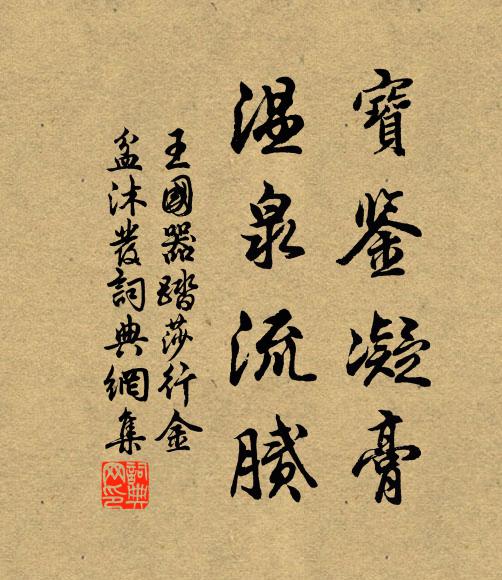 寶鉴凝膏
温泉流膩
王國器踏莎行金
盆沐发詞典網集
詞典网印